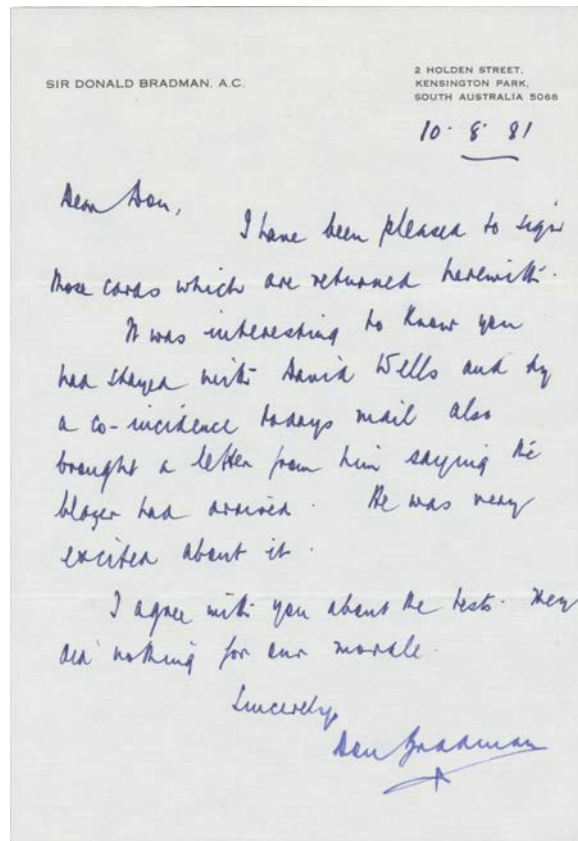 SIR DONALD BRADMAN. A.C.
2 HOLDEN STREET,
KENSINGTON PARK,
SOUTH AUSTRALIA 5066
10. 8. 81
Dear Don,
I have been pleased to sign
those cards which are returned herewith.
It was interesting to know you
had stayed with David Wells and by
a co-incidence todays mail also
brought a letter from him saying the
blazer had arrived. He was very
excited about it.
I agree with you about the tests. They
did nothing for our morale.
Sincerely,
Don Bradman